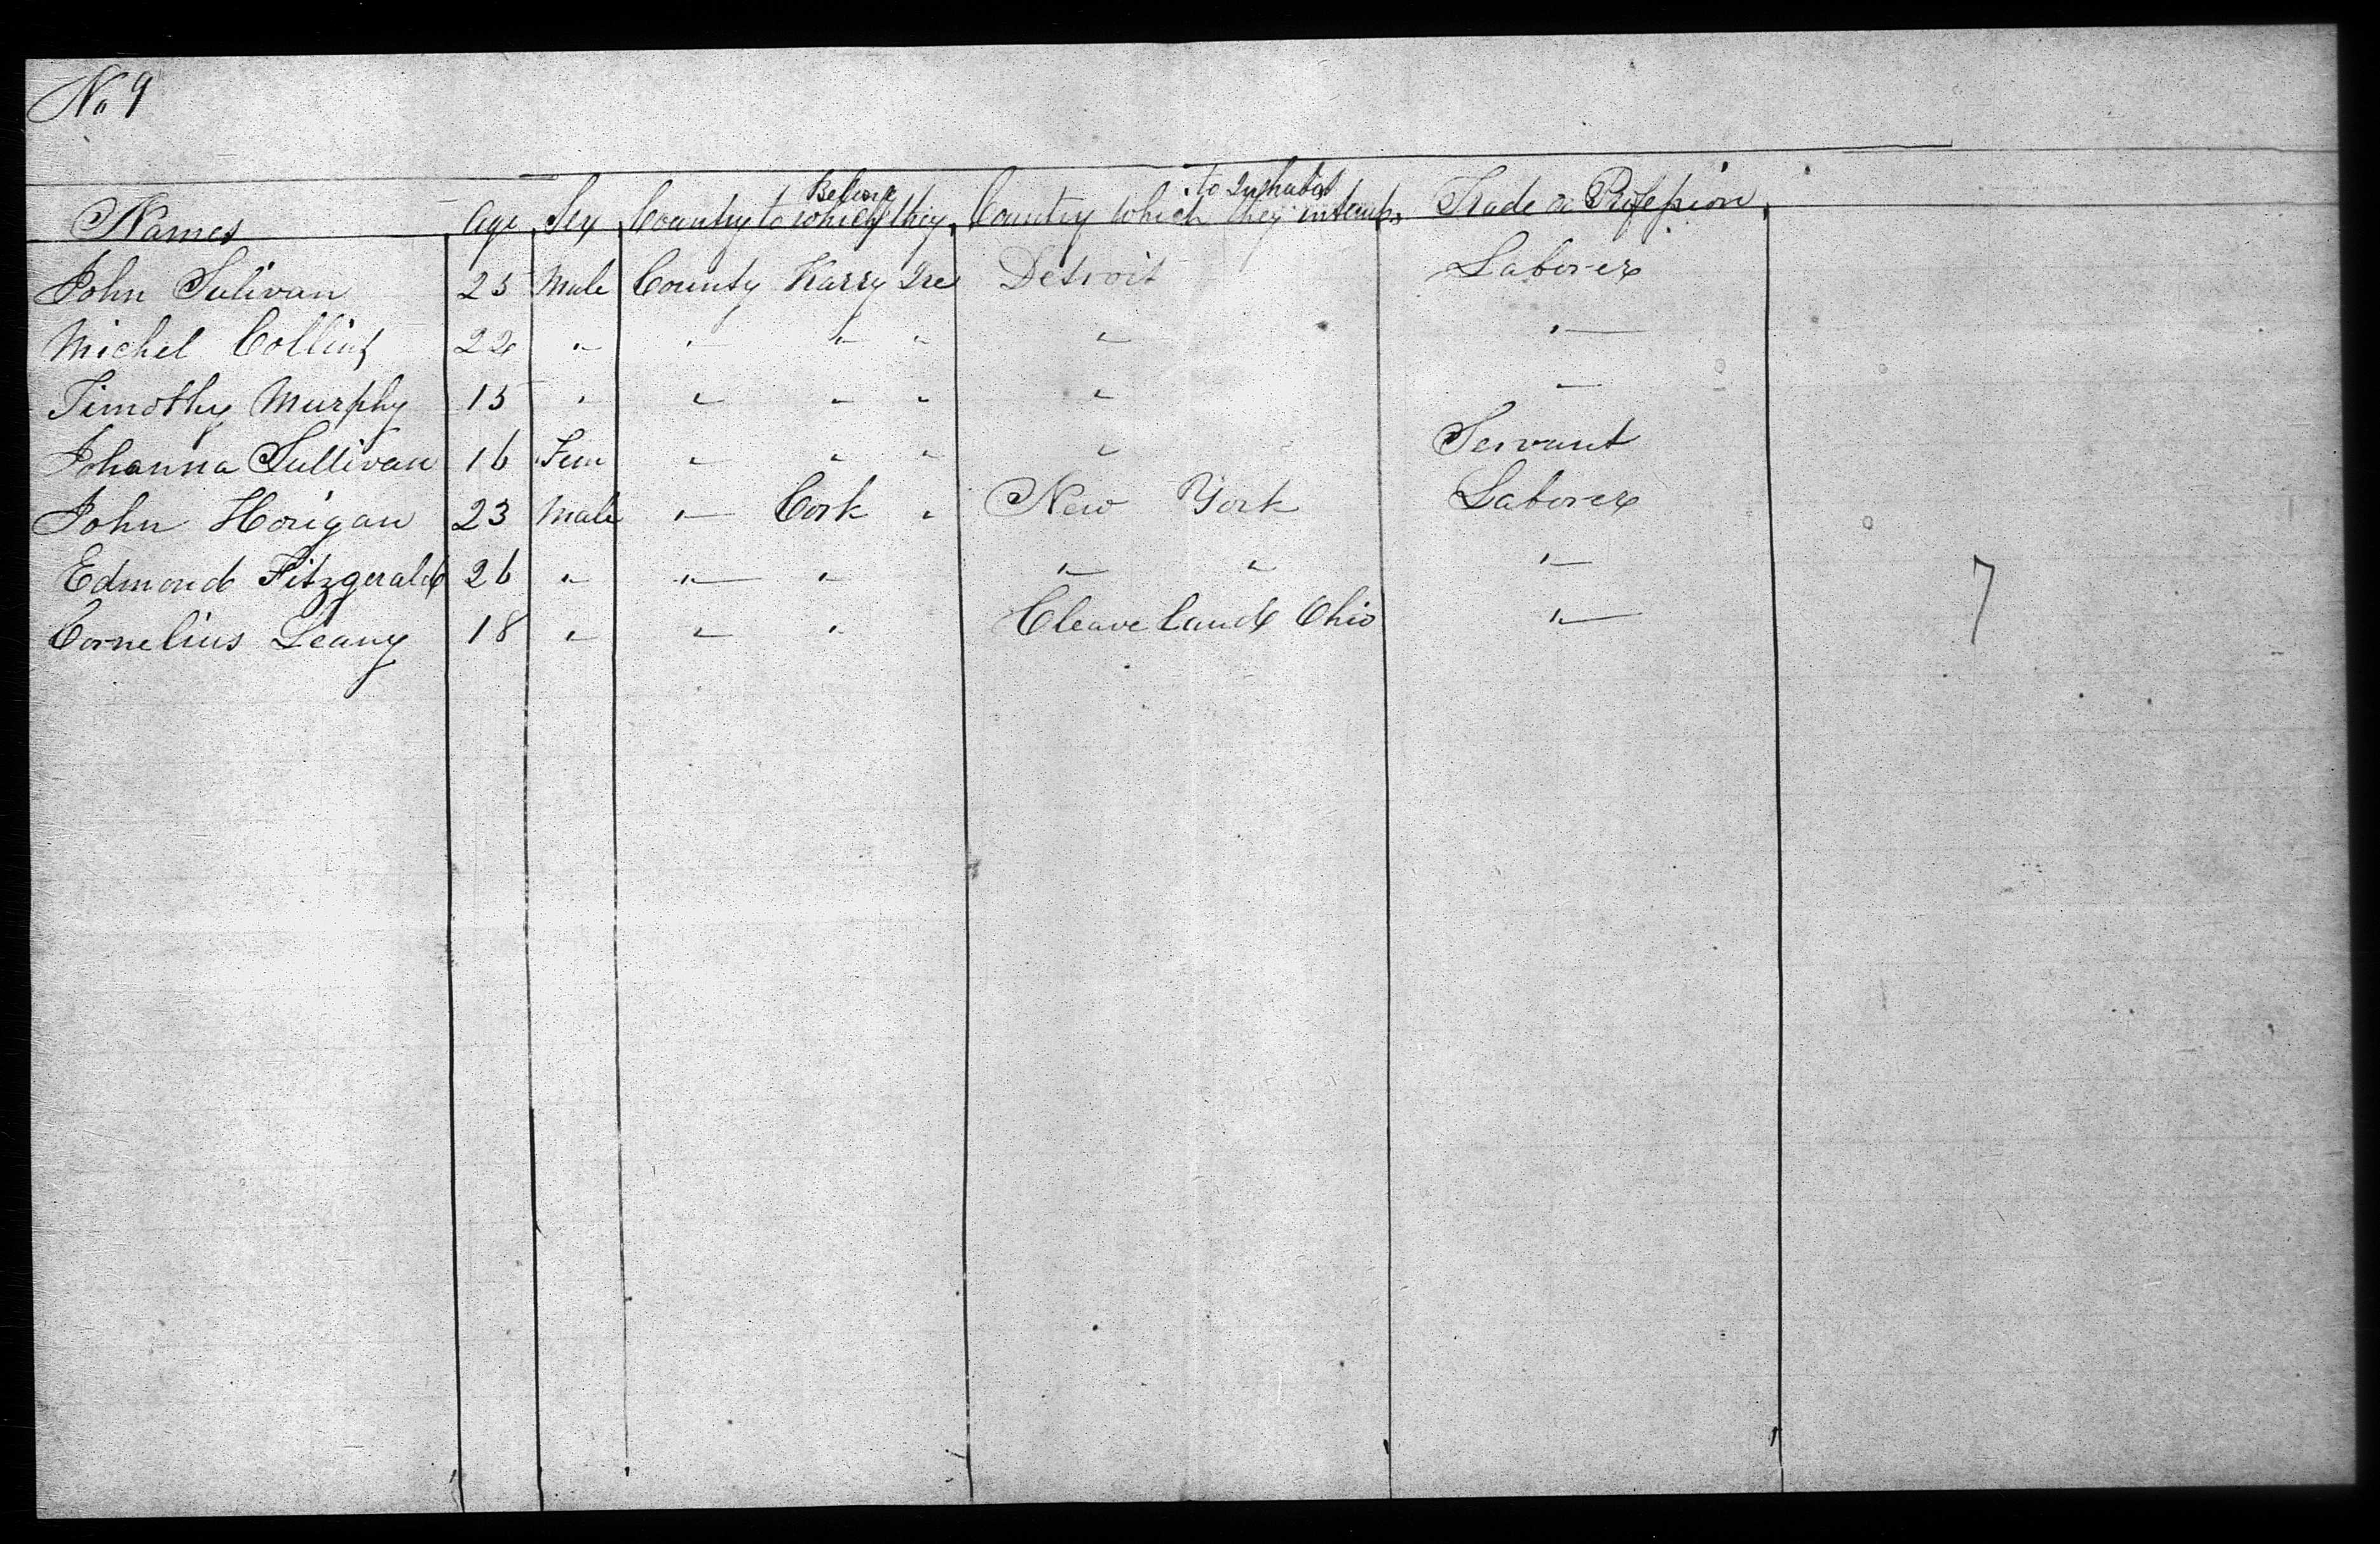 No 9
Names Age Sex Country to which they Belong Country which they intend to Inhabit Trade or Profession
John Sulivan 25 Male County Karry Ire Detroit Laborer
Michel Collins 22 " " " " " "
Timothy Murphy 15 " " " " " "
Johanna Sullivan 16 Fem " " " " Servant
John Horigan 23 Male " Cork " New York Laborer
Edmond Fitzgerald 26 " " " " " "
Cornelius Leany 18 " " " Cleaveland Ohio "
7